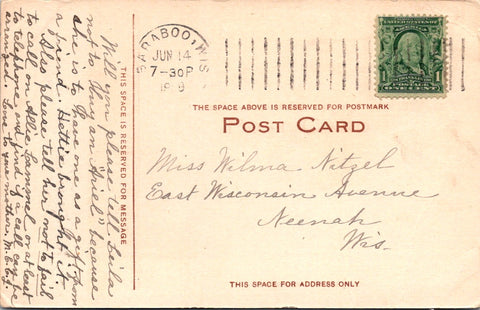 BARABOO, WIS.
JUN 14
7-30P
UNITED STATES OF AMERICA
1
POSTAGE
ONE CENT
THE SPACE ABOVE IS RESERVED FOR POSTMARK
POST CARD
Miss Wilma Nitzel
East Wisconsin Avenue
Neenah
Wis.
THIS SPACE FOR ADDRESS ONLY
THIS SPACE IS RESERVED FOR MESSAGE
Will you please tell Leila
not to buy an "Ariel" because
she is to have one as a gift from
a friend. Hettie brought it.
Also please tell her not to fail
to call on Alli or at least
to telephone and find if a call may be
arranged. Love to your mother. M.E.B.J.